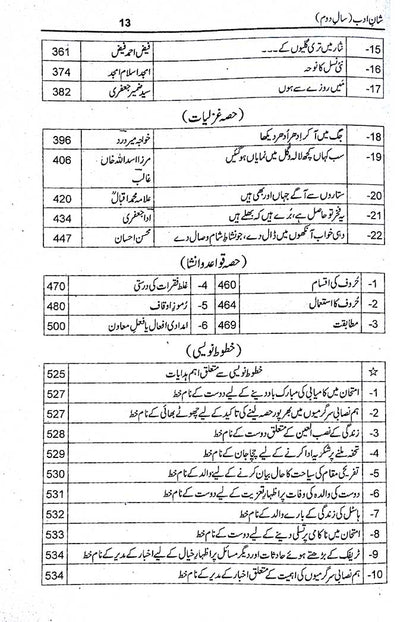 شان ادب (سال دوم) 13
15- نثار میں تری گلیوں کے۔۔۔ فیض احمد فیض 361
16- نئی نسل کا نوحہ امجد اسلام امجد 374
17- میں روزے سے ہوں سید ضمیر جعفری 382
(حصہ غزلیات)
18- جگ میں آ کر اِدھر اُدھر دیکھا خواجہ میر درد 396
19- سب کہاں کچھ لالہ و گل میں نمایاں ہو گئیں مرزا اسد اللہ خاں غالب 406
20- ستاروں سے آگے جہاں اور بھی ہیں علامہ محمد اقبالؒ 420
21- یہ فخر تو حاصل ہے، بُرے ہیں کہ بھلے ہیں ادا جعفری 434
22- وہی خواب آنکھوں میں ڈال دے، جو نشاطِ شام وصال دے محسن احسان 447
(حصہ قواعد و انشا)
1- حُروف کی اقسام 460 4- غلط فقرات کی درستی 470
2- حُروف کا استعمال 464 5- رُموز اوقاف 480
3- مطابقت 469 6- امدادی افعال یا فعلِ معاون 500
(خطوط نویسی)
☆ خطوط نویسی سے متعلق اہم ہدایات 525
1- امتحان میں کامیابی کی مبارک باد دینے کے لیے دوست کے نام خط 527
2- ہم نصابی سرگرمیوں میں بھرپور حصہ لینے کی تاکید کے لیے چھوٹے بھائی کے نام خط 527
3- زندگی کے نصب العین کے متعلق دوست کے نام خط 528
4- تحفہ ملنے پر شکریہ ادا کرنے کے لیے چچا جان کے نام خط 529
5- تفریحی مقام کی سیاحت کا حال بیان کرنے کے لیے والد کے نام خط 530
6- دوست کی والدہ کی وفات پر اظہارِ تعزیت کے لیے دوست کے نام خط 531
7- ہاسٹل کی زندگی کے بارے والد کے نام خط 532
8- امتحان میں ناکامی پر تسلی دینے کے لیے دوست کے نام خط 533
9- ٹریفک کے بڑھتے ہوئے حادثات اور دیگر مسائل پر اظہارِ خیال کے لیے اخبار کے مدیر کے نام خط 534
10- ہم نصابی سرگرمیوں کی اہمیت کے متعلق اخبار کے مدیر کے نام خط 534